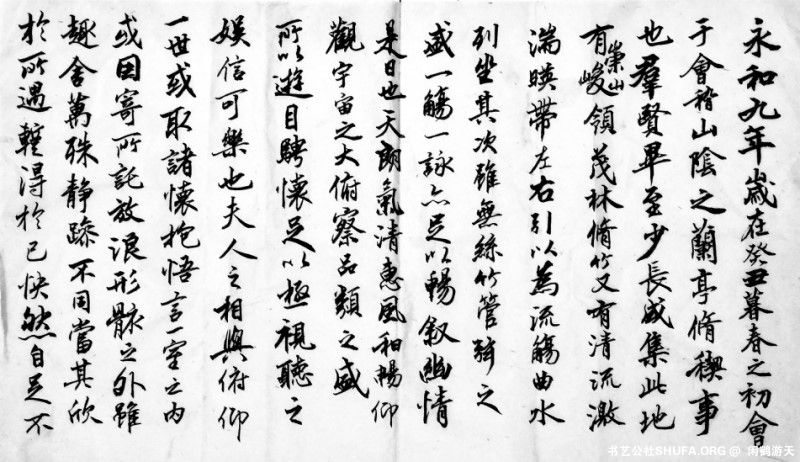 永和九年歲在癸丑暮春之初會
于會稽山陰之蘭亭脩稧事
也羣賢畢至少長咸集此地
有崇山峻領茂林脩竹又有清流激
湍暎帶左右引以為流觴曲水
列坐其次雖無絲竹管弦之
盛一觴一詠亦足以暢叙幽情
是日也天朗氣清惠風和暢仰
觀宇宙之大俯察品類之盛
所以遊目騁懷足以極視聽之
娛信可樂也夫人之相與俯仰
一世或取諸懷抱悟言一室之內
或因寄所託放浪形骸之外雖
趣舍萬殊静躁不同當其欣
於所遇蹔得於己怏然自足不
书艺公社SHUFA.ORG @ 闲鹤游天